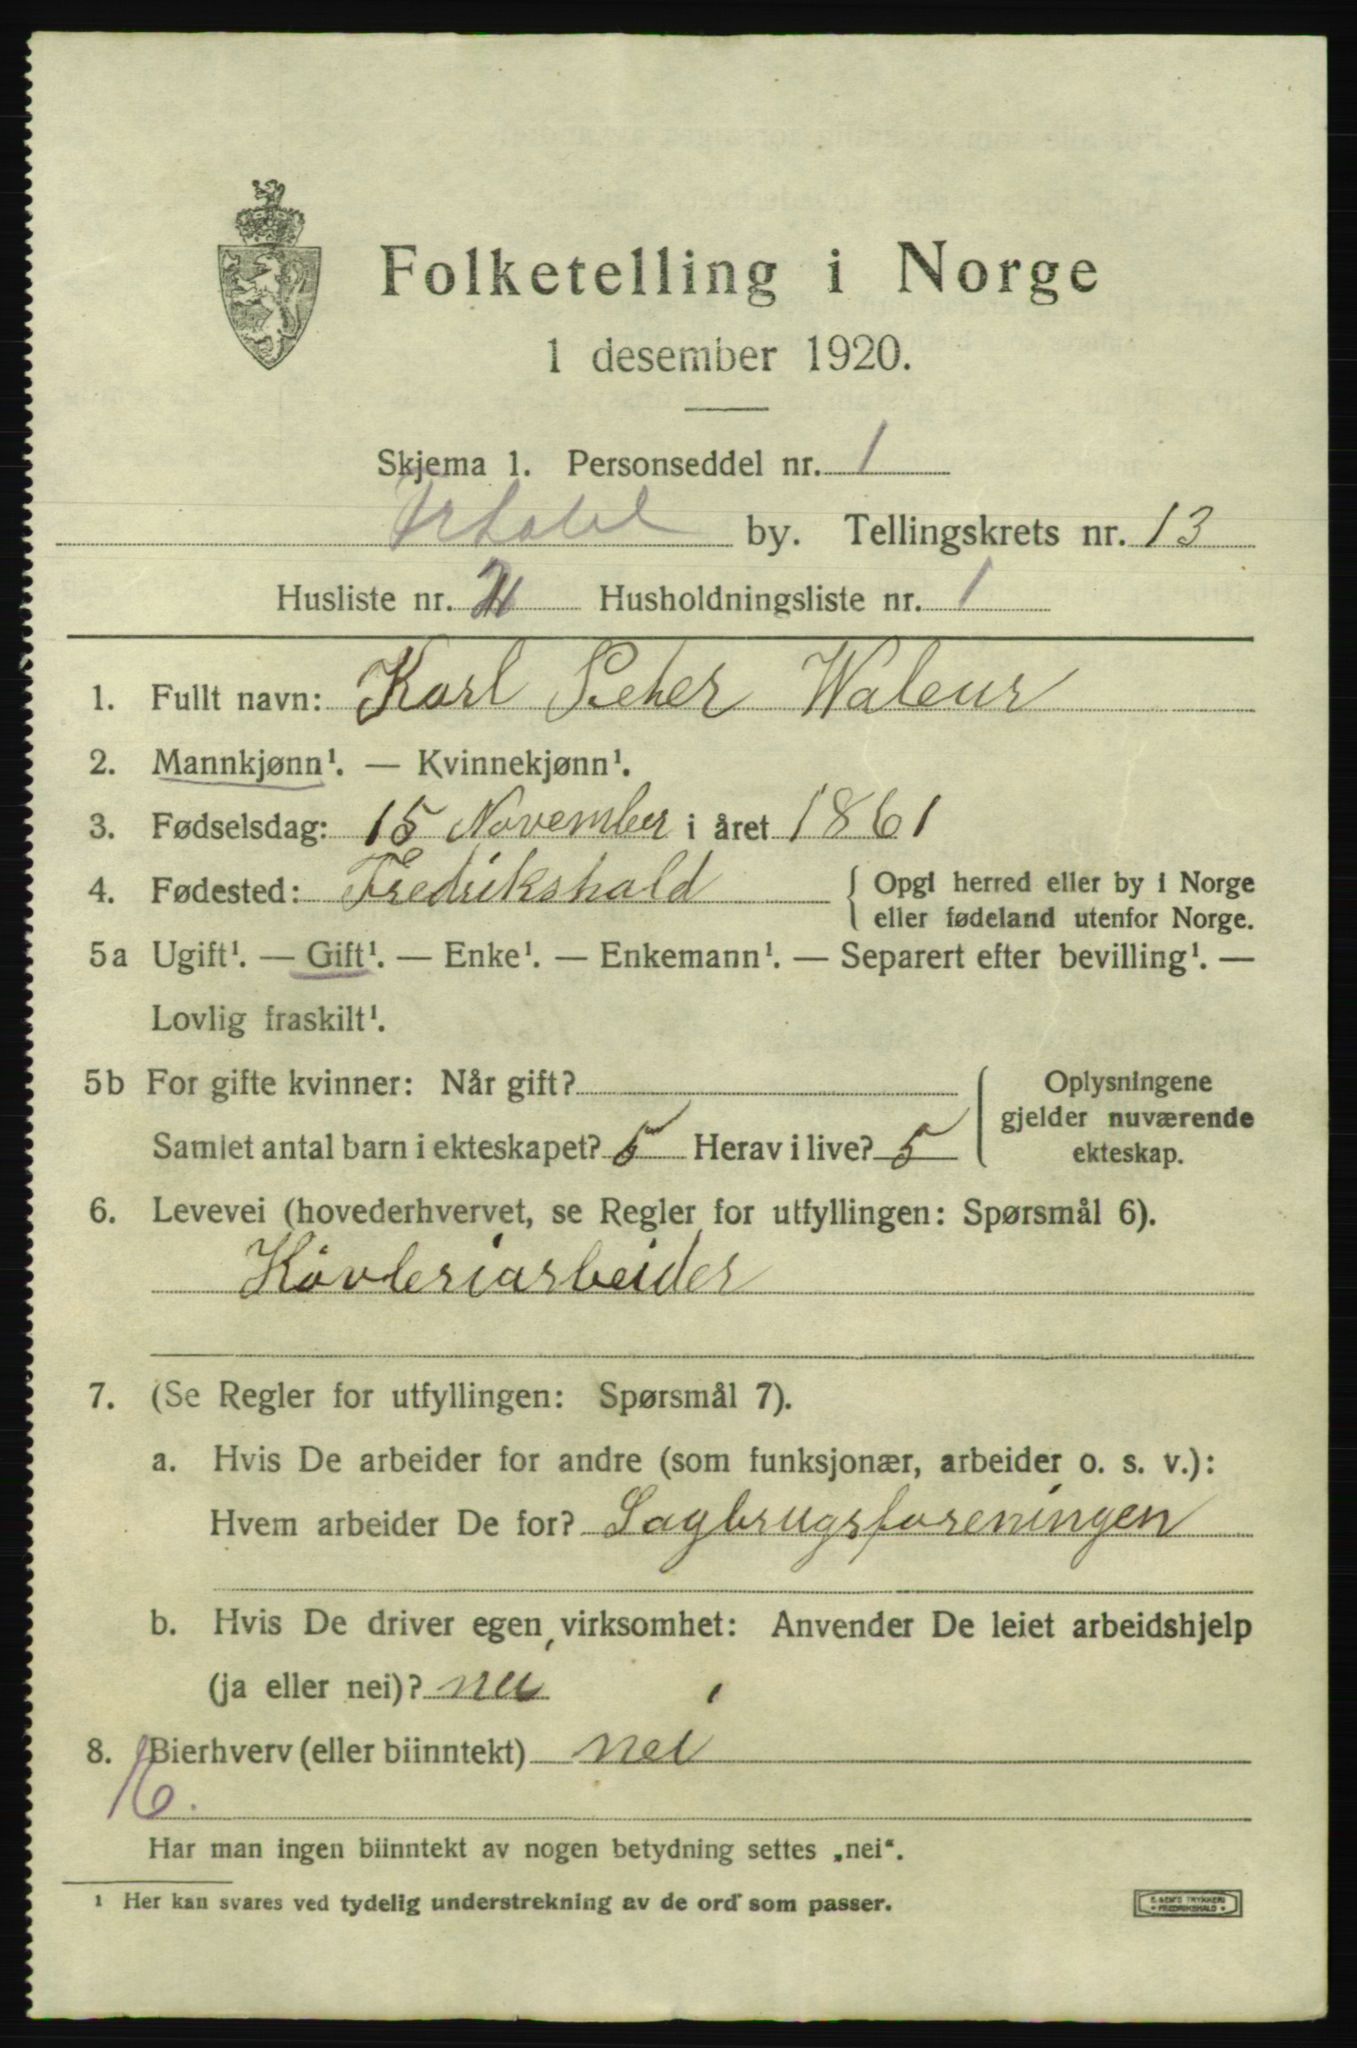 Folketelling i Norge
1 desember 1920.
Skjema 1. Personseddel nr. 1
Frhald by. Tellingskrets nr. 13
Husliste nr. Husholdningsliste nr. 1
1. Fullt navn: Karl Peter Waleur
2. Mannkjønn¹. — Kvinnekjønn¹.
3. Fødselsdag: 15 November i året 1861
4. Fødested: Fredrikshald { Opgi herred eller by i Norge
eller fødeland utenfor Norge.
5a Ugift¹. — Gift¹. — Enke¹. — Enkemann¹. — Separert efter bevilling¹. —
Lovlig fraskilt¹.
5b For gifte kvinner: Når gift?
Samlet antal barn i ekteskapet? 5 Herav i live? 5
{ Oplysningene
gjelder nuværende
ekteskap.
6. Levevei (hovederhvervet, se Regler for utfyllingen: Spørsmål 6).
Høvleriarbeider
7. (Se Regler for utfyllingen: Spørsmål 7).
a. Hvis De arbeider for andre (som funksjonær, arbeider o. s. v.):
Hvem arbeider De for? Sagbrugsforeningen
b. Hvis De driver egen virksomhet: Anvender De leiet arbeidshjelp
(ja eller nei)? nei
8. Bierhverv (eller biinntekt) nei
16.
Har man ingen biinntekt av nogen betydning settes „nei“.
¹ Her kan svares ved tydelig understrekning av de ord som passer.